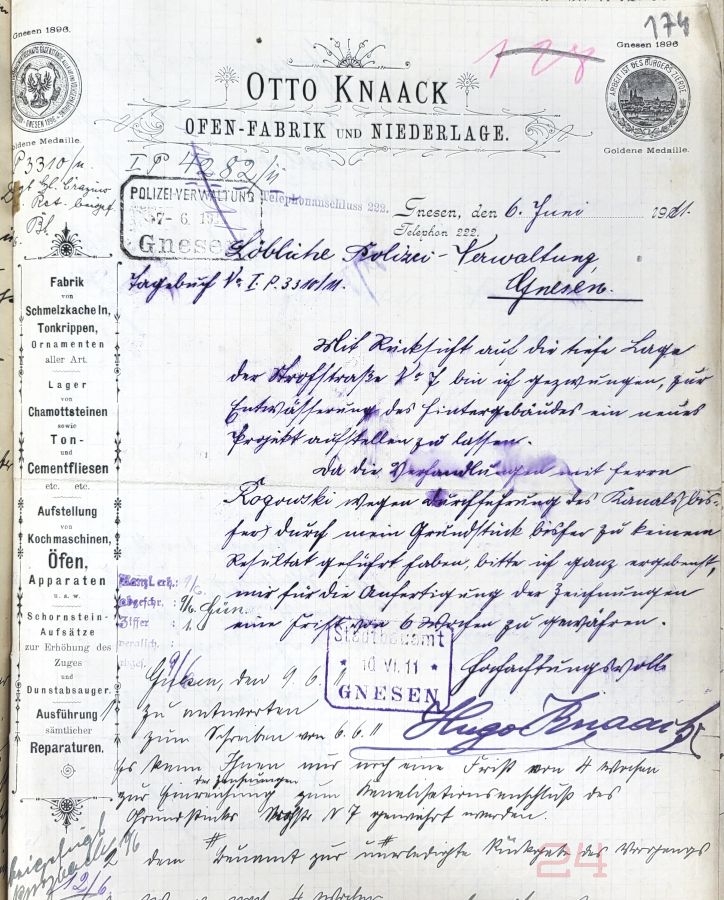 174
128
Gnesen 1896.
Gnesen 1896
GNESEN 1896
ARBEIT IST DES BÜRGERS ZIERDE
OTTO KNAACK
OFEN-FABRIK UND NIEDERLAGE.
oldene Medaille.
Goldene Medaille.
P 3310/11
I P 4282/11
POLIZEI-VERWALTUNG
7- 6. 19
Gnesen
Telephonanschluss 222.
Gnesen, den 6. Juni 1911.
Telephon 222.
Löbliche Polizei-Verwaltung,
Gnesen.
Tagebuch No I. P. 3310/11.
Mit Rücksicht auf die tiefe Lage
der Strohstraße No 7 bin ich gezwungen, zur
Entwässerung des Hintergebäudes ein neues
Projekt aufstellen zu lassen.
Da die Verhandlungen mit Herrn
Rogowski wegen Durchführung des Kanals (bis-
her) durch mein Grundstück bisher zu keinem
Resultat geführt haben, bitte ich ganz ergebenst,
mir für die Anfertigung der Zeichnungen
eine Frist von 6 Wochen zu gewähren.
Hochachtungsvoll
Hugo Knaack
Fabrik
von
Schmelzkacheln,
Tonkrippen,
Ornamenten
aller Art.
Lager
von
Chamottsteinen
sowie
Ton-
und
Cementfliesen
etc. etc.
Aufstellung
von
Kochmaschinen,
Öfen,
Apparaten
u. s. w.
Schornstein-
Aufsätze
zur Erhöhung des
Zuges
und
Dunstabsauger.
Ausführung
sämtlicher
Reparaturen.
Kanzl. erh.: 9/6
abgeschr. : 9/6
Ziffer : 1
Stadtbauamt
* 10 VI. 11 *
GNESEN
Gnesen, den 9. 6. 11
1 zu antworten
zum Schreiben vom 6. 6. 11
Es kann Ihnen nur noch eine Frist von 4 Wochen
der Zeichnungen
zur Einreichung zum Kanalisationsanschluß des
Grundstücks No 7 gewährt werden.
2 dem Bauamt zur unerledigte Rückgabe des Vorgangs
9/6
12/6.
4 Wochen
24